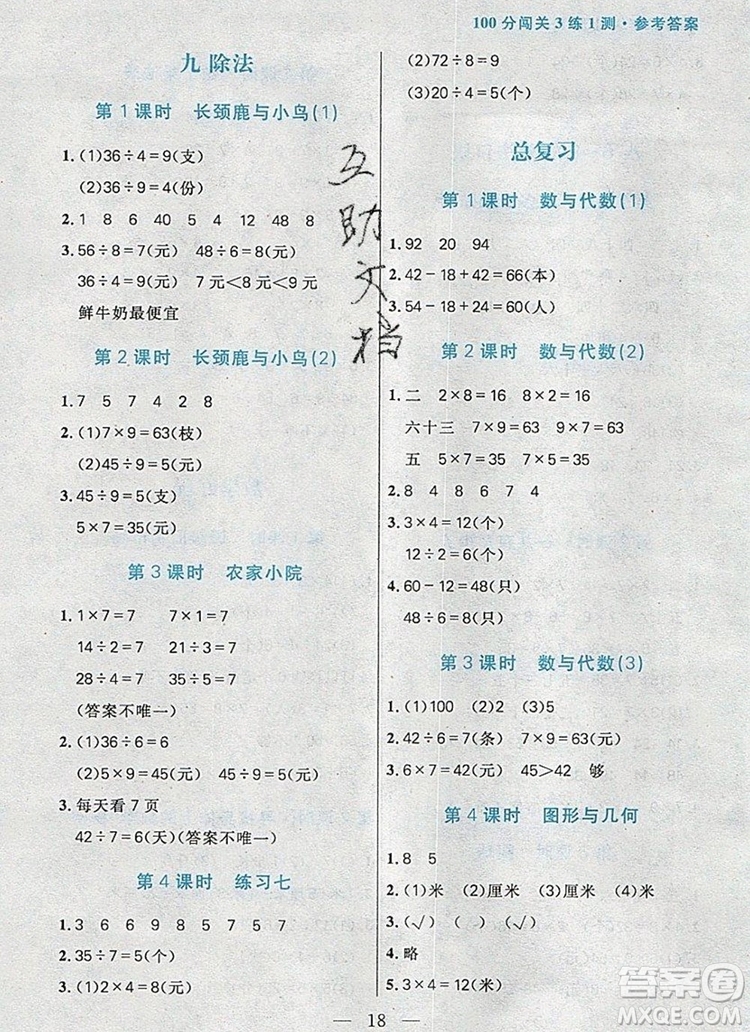 100分闯关3练1测·参考答案
九 除法
第1课时 长颈鹿与小鸟(1)
1.(1)36÷4=9(支)
(2)36÷9=4(份)
2.1 8 6 40 5 4 12 48 8
3.56÷8=7(元) 48÷6=8(元)
36÷4=9(元) 7元<8元<9元
鲜牛奶最便宜
第2课时 长颈鹿与小鸟(2)
1.7 5 7 4 2 8
2.(1)7×9=63(枝)
(2)45÷9=5(元)
3.45÷9=5(支)
5×7=35(元)
第3课时 农家小院
1.1×7=7 7×1=7
14÷2=7 21÷3=7
28÷4=7 35÷5=7
(答案不唯一)
2.(1)36÷6=6
(2)5×9=45(元) 45÷9=5(元)
3.每天看7页
42÷7=6(天)(答案不唯一)
第4课时 练习七
1.3 6 9 4 8 9 8 5 7 5 7
2.35÷7=5(个)
3.(1)2×4=8(元)
(2)72÷8=9
(3)20÷4=5(个)
总复习
第1课时 数与代数(1)
1.92 20 94
2.42-18+42=66(本)
3.54-18+24=60(人)
第2课时 数与代数(2)
1.二 2×8=16 8×2=16
六十三 7×9=63 9×7=63
五 5×7=35 7×5=35
2.8 4 8 6 7 4
3.3×4=12(个)
12÷2=6(个)
4.60-12=48(只)
48÷6=8(只)
第3课时 数与代数(3)
1.(1)100 (2)2 (3)5
2.42÷6=7(条) 7×9=63(元)
3.6×7=42(元) 45>42 够
第4课时 图形与几何
1.8 5
2.(1)米 (2)厘米 (3)厘米 (4)米
3.(√) (√) (√)
4.略
5.3×4=12(米)
互助文档
18
答案圈
MXQE.COM